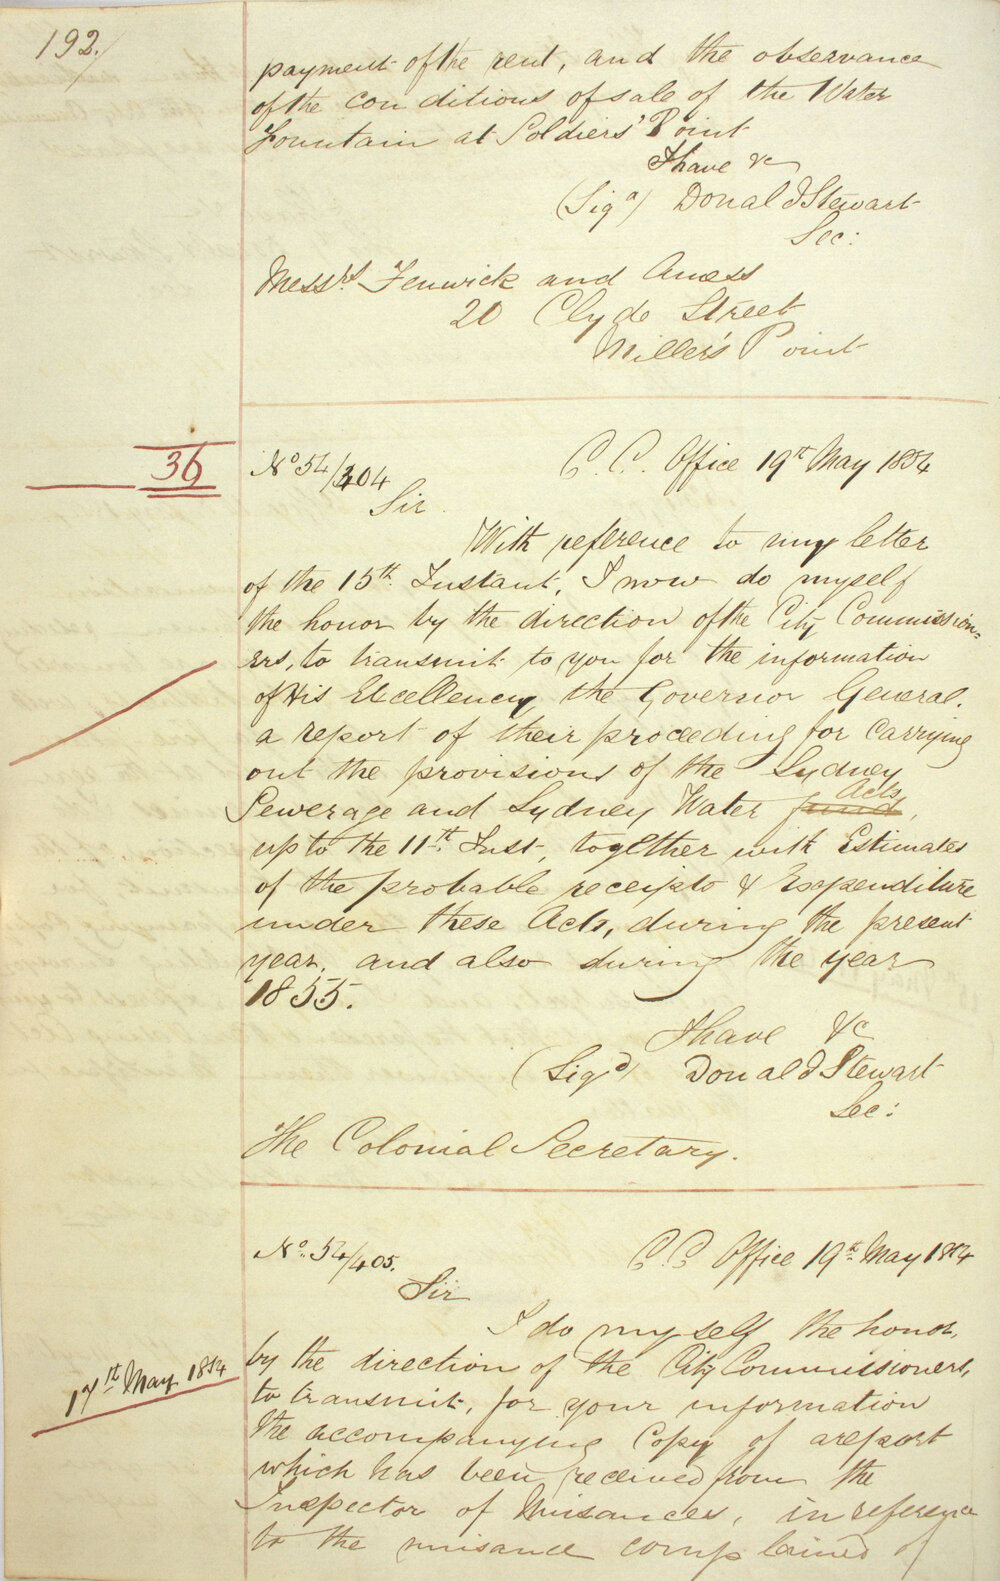 192.
payment of the rent, and the observance
of the conditions of sale of the Water
Fountain at Soldiers' Point
I have &c
(Sigd) Donald Stewart
Sec:
Messrs. Fenwick and
20 Clyde Street
Miller's Point
36
No 54/404
C. C. Office 19th May 1854
Sir
With reference to my letter
of the 15th. Instant, I now do myself
the honor by the direction of the City Commission=
ers, to transmit to you for the information
of His Excellency the Governor General.
a report of their proceeding for carrying
out the provisions of the Sydney
Acts
Sewerage and Sydney Water fund,
up to the 11th. Inst, together with Estimates
of the probable receipts & Expenditure
under these Acts, during the present
year, and also during the year
1855.
I have &c
(Sigd) Donald Stewart
Sec:
The Colonial Secretary.
No. 54/405.
C. C Office 19th May 1854
Sir
I do myself the honor,
by the direction of the City Commissioners,
17th May 1854
to transmit, for your information
the accompanying Copy of a report
which has been received from the
Inspector of Nuisances, in reference
to the nuisance complained of